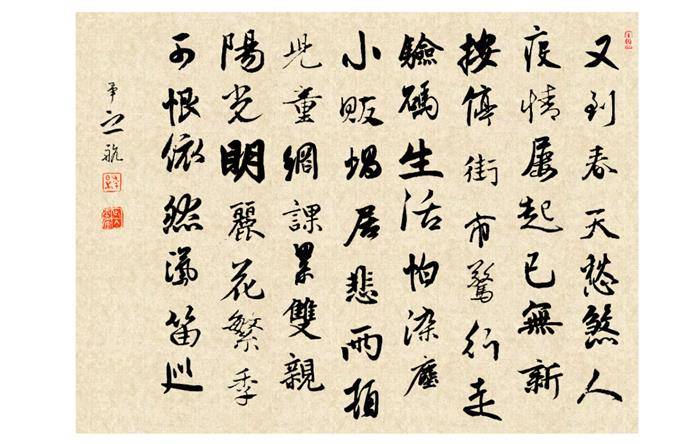 又到春天愁煞人
疫情屡起已無新
按停街市驚行走
驗碼生活怕染塵
小販蝸居悲两頓
兒童網課累雙親
陽光明麗花繁季
可恨依然鳴笛巡
之航